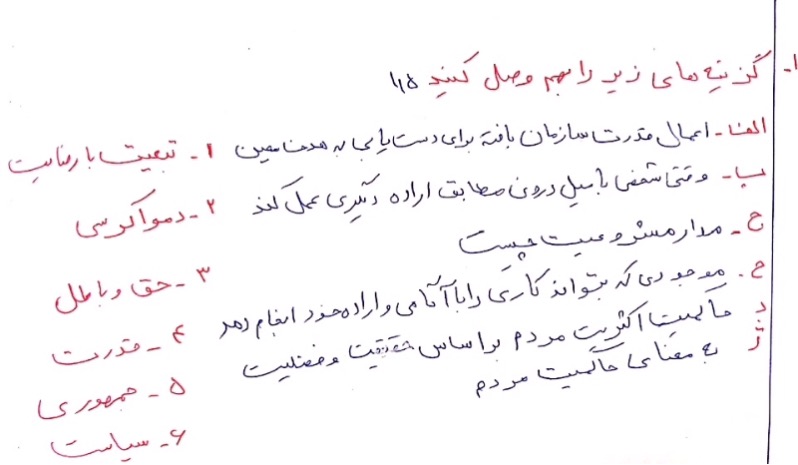 ۱- گزینه های زیر را بهم وصل کنید ۱/۵
الف- اعمال قدرت سازمان یافته برای دست یابی به هدف معین ۱- تبعیت با رضایت
ب- وقتی شخص با میل درونی مطابق اراده دیگری عمل کند ۲- دمواکرسی
ج- مدار مشروعیت چیست ۳- حق و باطل
ح- موجودی که بتواند کاری را با آگاهی و اراده خود انجام دهد ۴- قدرت
د حاکمیت اکثریت مردم براساس حقیقت و فضلیت ۵- جمهوری
به معنای حاکمیت مردم ۶- سیاست